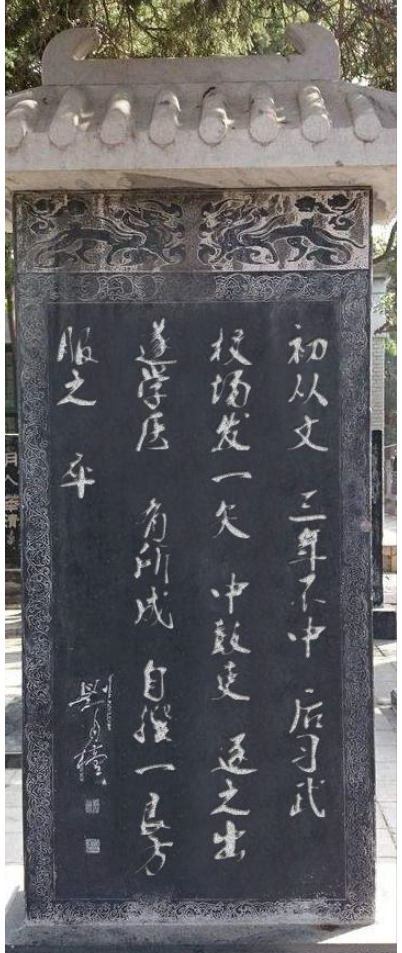 初从文 三年不中 后习武
校场发一矢 中鼓吏 逐之出
遂学医 有所成 自撰一良方
服之 卒